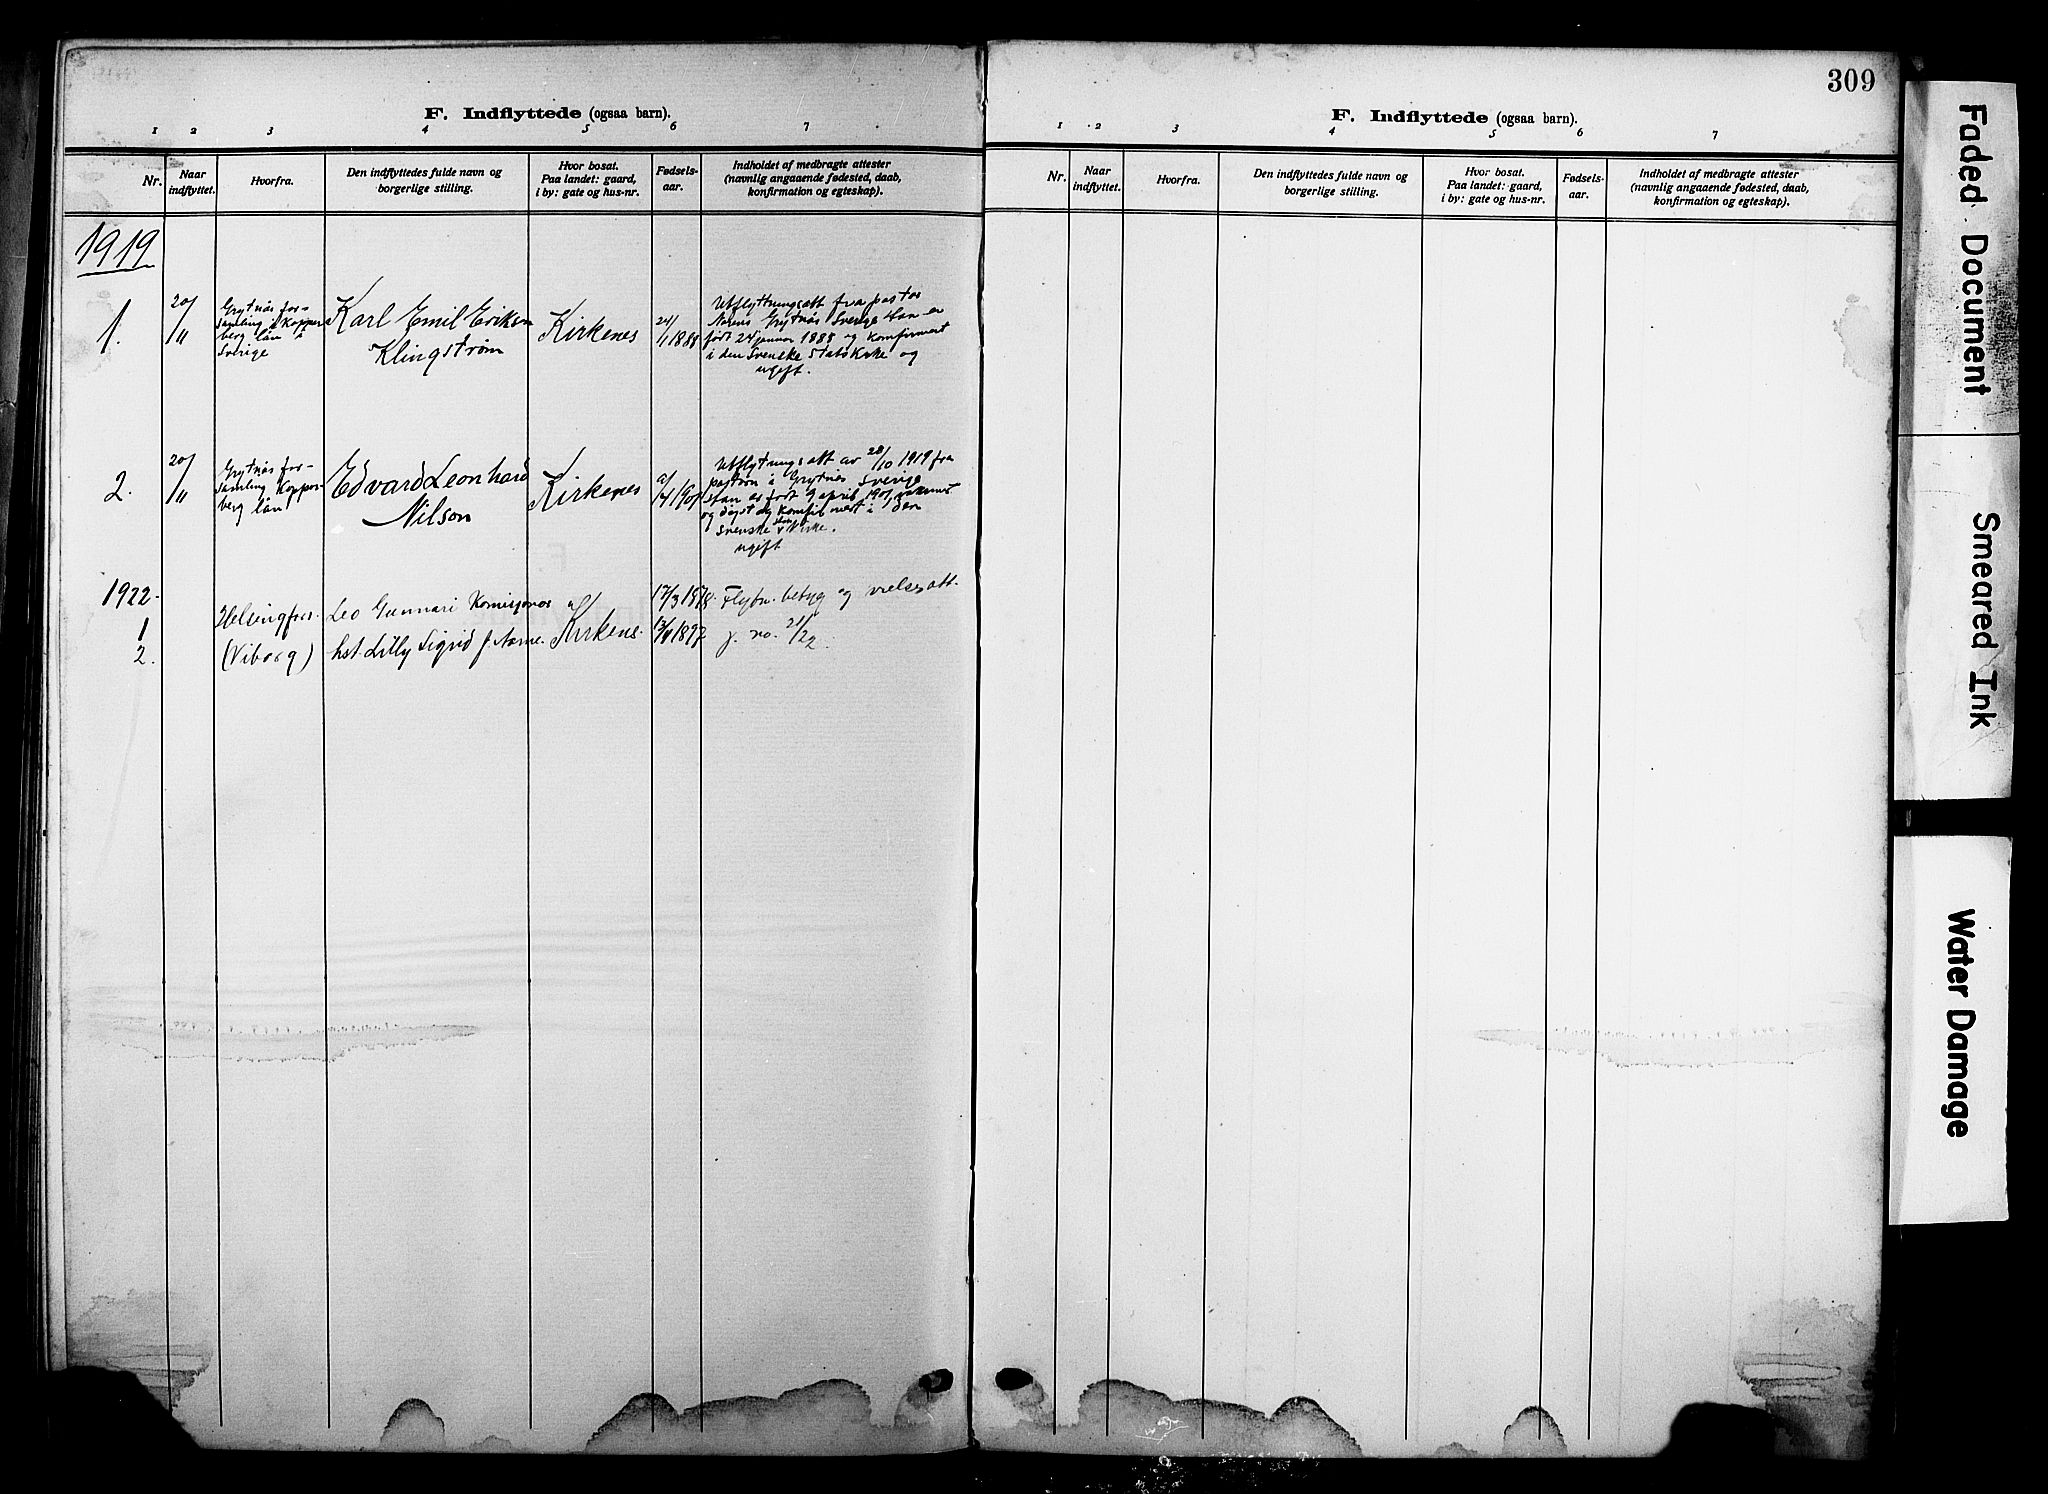 309
F. Indflyttede (ogsaa barn).
1 2 3 4 5 6 7
Nr.
Naar indflyttet.
Hvorfra.
Den indflyttedes fulde navn og
borgerlige stilling.
Hvor bosat.
Paa landet: gaard,
i by: gate og hus-nr.
Fødsels-
aar.
Indholdet af medbragte attester
(navnlig angaaende fødested, daab,
konfirmation og egteskap).
1919
1.
20/11
Grytnäs for-
samling i Koppar-
berg län i
Sverige
Karl Emil Erikson
Klingstrøm
Kirkenes
24/1 1888
Utflyttningsatt fra pastor
Noréns Grytnäs Sverige Han er
født 24 januar 1888 og konfirmert
i den Svenske Statskirke og
ugift.
2.
20/11
Grytnäs for-
samling Koppar-
berg län
Edvard Leonhard
Nilson
Kirkenes
9/4 1901
Utflytningsatt av 28/10 1919 fra
pastorn i Grytnäs Sverige
Han er født 9 april 1901,
og døpt og konfirmert i den
svenske stats Kirke.
ugift
1922.
1
2.
Helsingfors.
(Viborg)
Leo Gunnari
hst. Lilly Sigrid f.
Kirkenes.
17/3 1878.
13/11 1897
Flytn. betyg og vielsesatt.
j. no. 21/22.
F. Indflyttede (ogsaa barn).
1 2 3 4 5 6 7
Nr.
Naar indflyttet.
Hvorfra.
Den indflyttedes fulde navn og
borgerlige stilling.
Hvor bosat.
Paa landet: gaard,
i by: gate og hus-nr.
Fødsels-
aar.
Indholdet af medbragte attester
(navnlig angaaende fødested, daab,
konfirmation og egteskap).
Faded Document
Smeared Ink
Water Damage